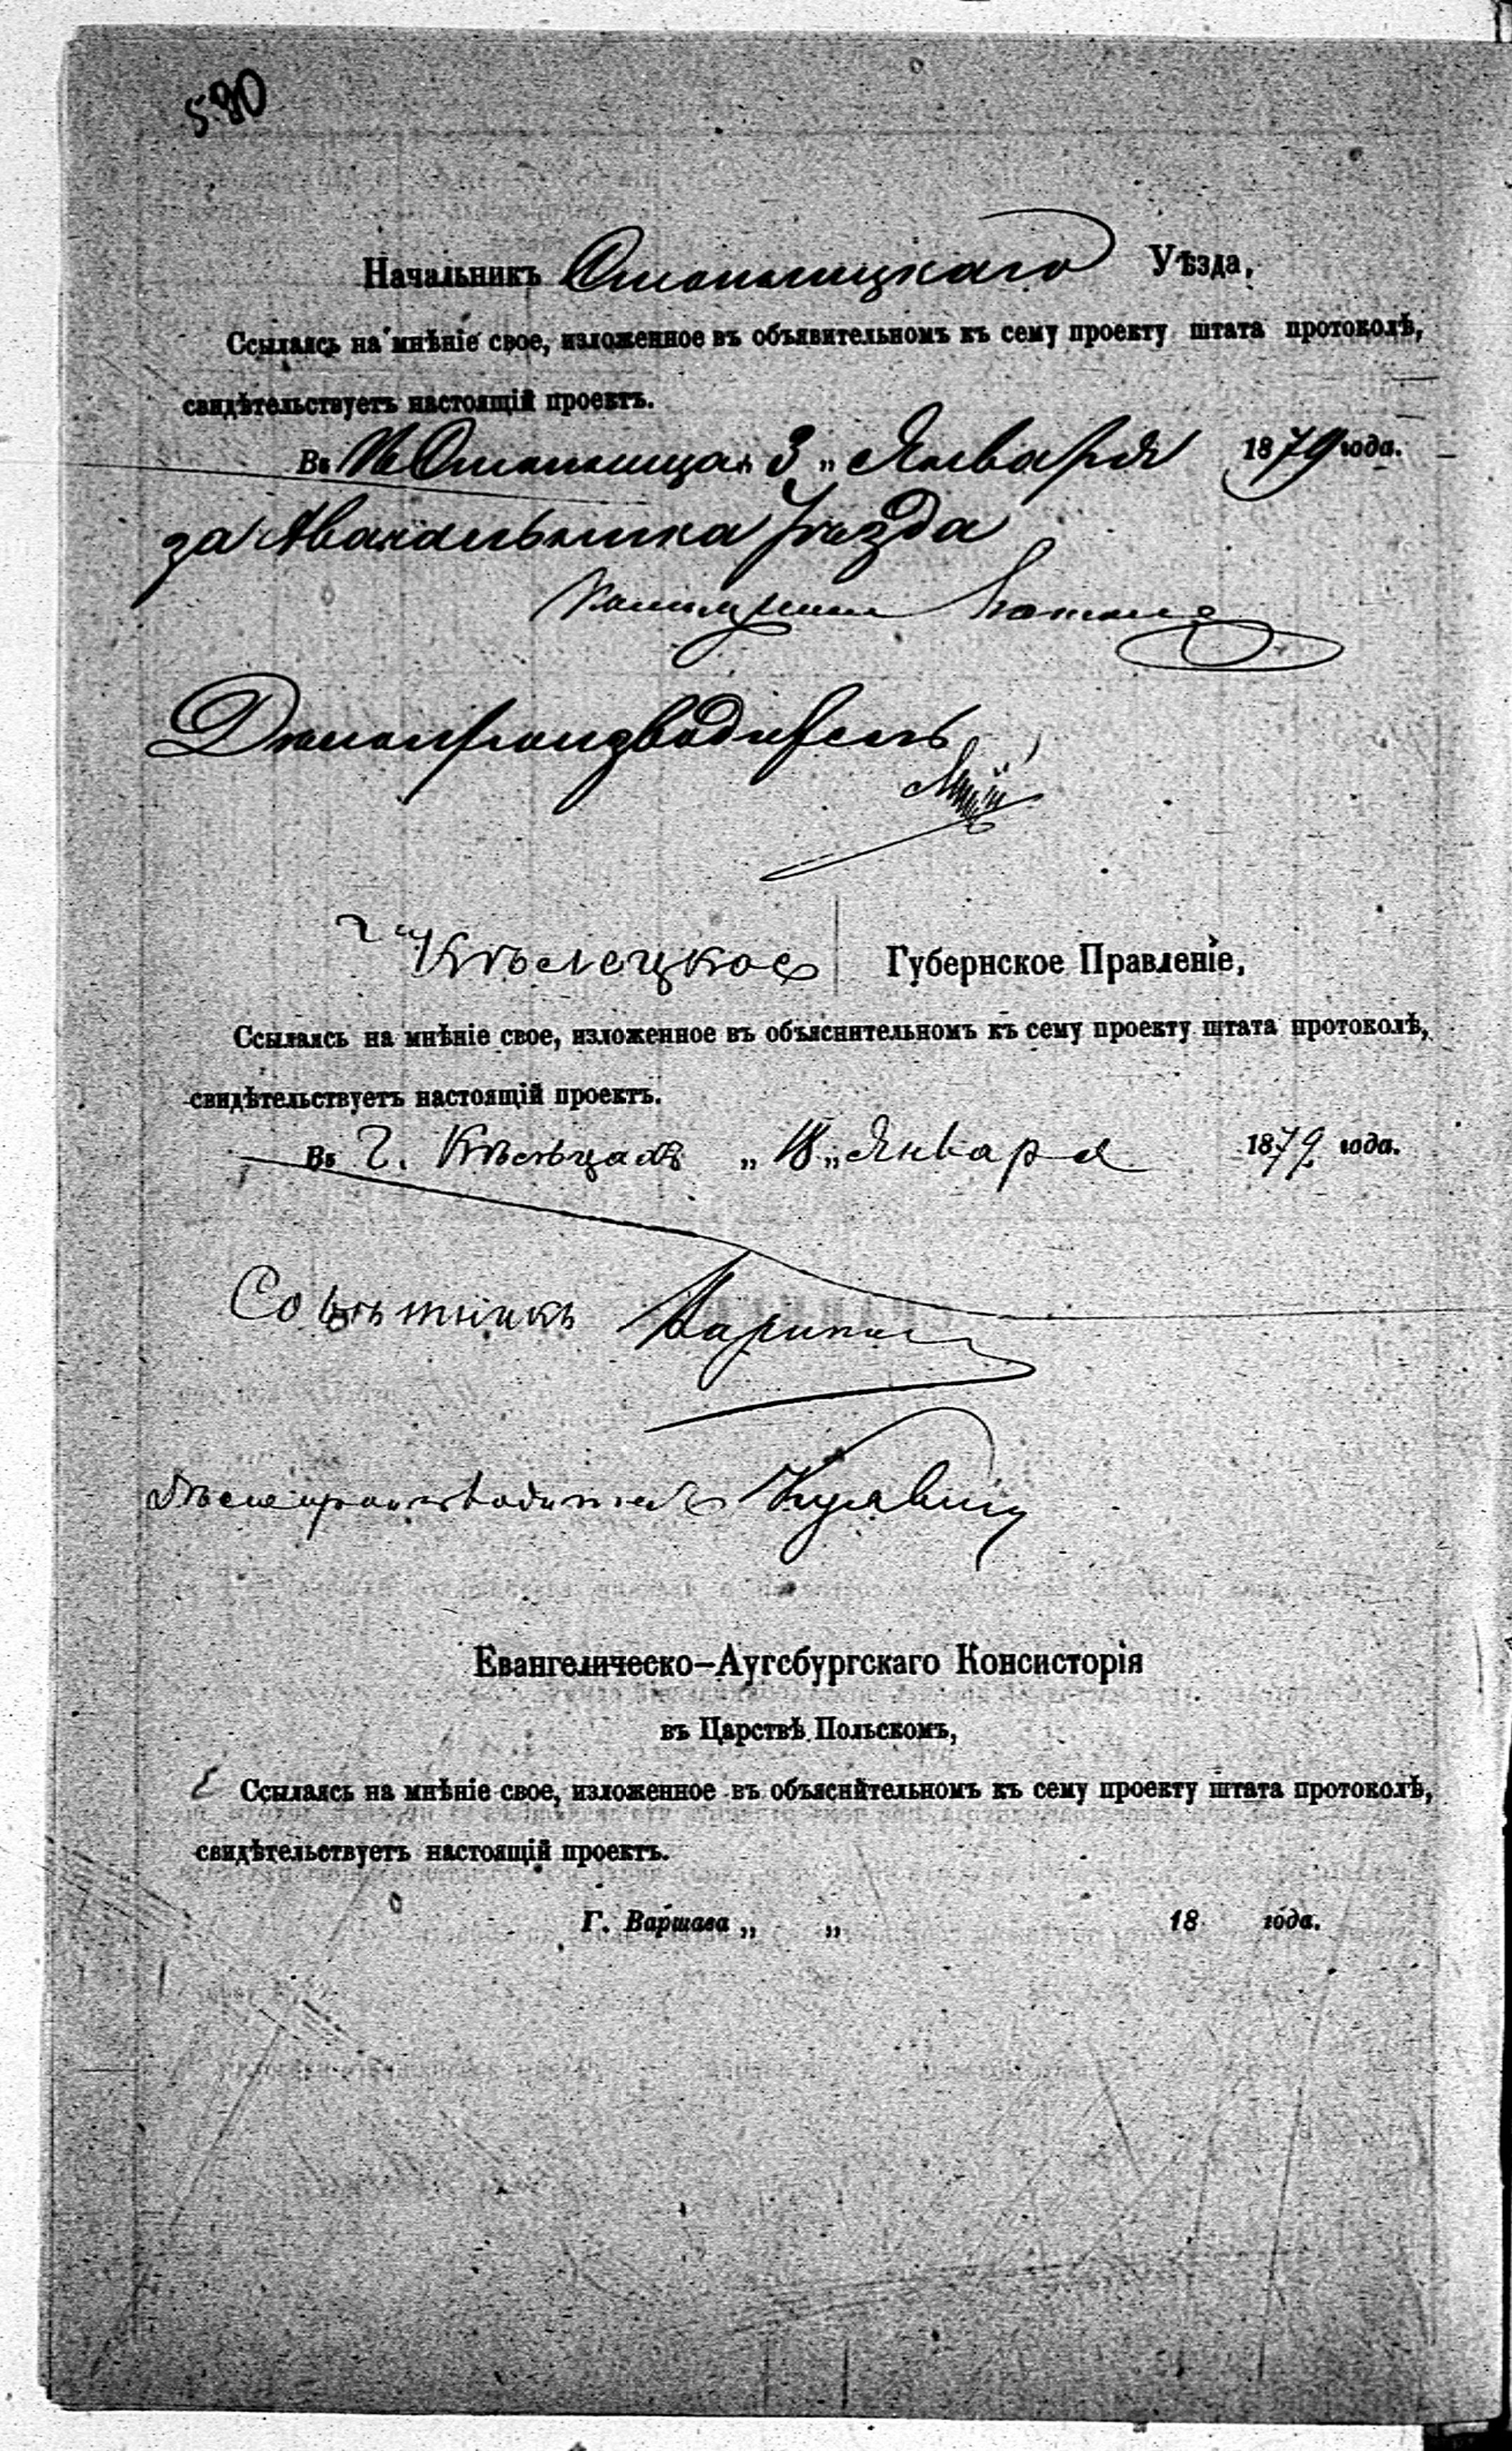 580
Начальникъ Стопницкаго Уѣзда,
Ссылаясь на мнѣніе свое, изложенное въ объявительномъ къ сему проекту штата протоколѣ,
свидѣтельствуетъ настоящій проектъ.
Въ Стопница 3 „ Января 1879 года.
за Начальника Уѣзда
Дѣлопроизводитель
Кѣлецкое Губернское Правленіе,
Ссылаясь на мнѣніе свое, изложенное въ объяснительномъ къ сему проекту штата протоколѣ,
свидѣтельствуетъ настоящій проектъ.
Въ г. Кѣльцахъ „ 18 „ Января 1879 года.
Совѣтникъ
Дѣлопроизводитель
Евангелическо-Аугсбургскаго Консисторія
въ Царствѣ Польскомъ,
Ссылаясь на мнѣніе свое, изложенное въ объяснительномъ къ сему проекту штата протоколѣ,
свидѣтельствуетъ настоящій проектъ.
Г. Варшава „ „ 18 года.